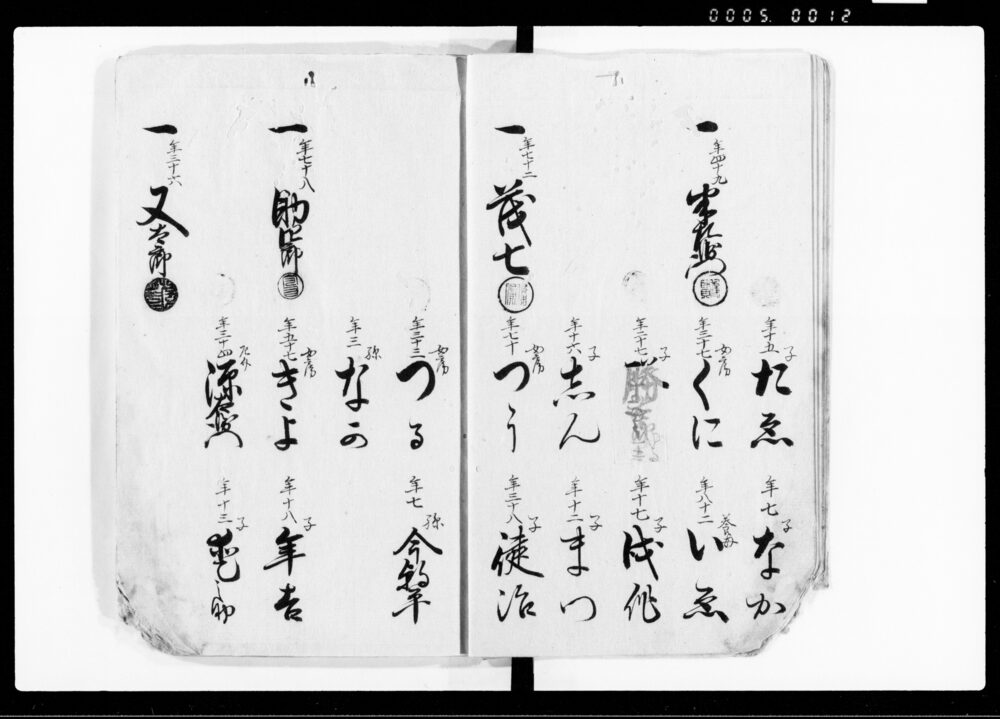 0005. 0012
一
年四十九
年三十七
女房
くに
年八十二
養母
いゑ
年十五
子
たゑ
年七
子
なか
年二十七
子
年十七
子
年十六
子
志ん
年十二
子
まつ
一
年七十二
茂七
年七十
女房
つう
年三十八
子
徒治
年三十三
女房
つる
年七
孫
年三
孫
なか
一
年七十八
助四郎
年五十七
女房
きよ
年十八
子
年吉
一
年三十六
又太郎
年三十四
源右衛門
年十三
子